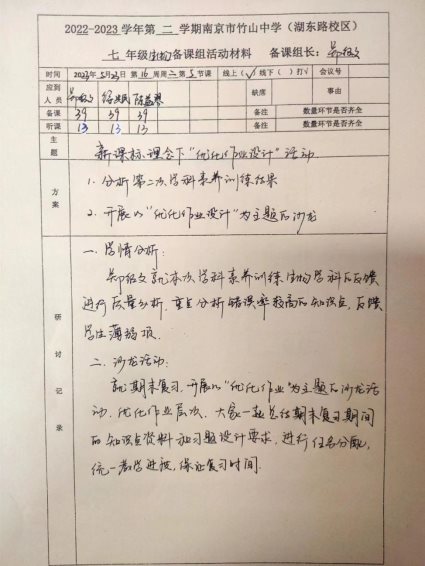 2022-2023学年第 二 学期南京市竹山中学（湖东路校区）
七 年级生物备课组活动材料 备课组长：郑绍文
时间 2023年5月23日 第 16 周周二第5节课 线上（√）线下（ ）打√ 会议号
应到人员 郑绍文 陈益琴 缺席 事由
备课 39 39 39 备注 数量环节是否齐全
听课 13 13 13 备注 数量环节是否齐全
主题 新课标理念下“优化作业设计”活动.
方案 1. 分析第二次学科素养训练结果
2. 开展以“优化作业设计”为主题的沙龙
研讨记录
一、学情分析：
郑绍文就本次学科素养训练生物学科的反馈
进行质量分析，重点分析错误率较高的知识点，反馈
学生薄弱项.
二、沙龙活动：
就期末复习，开展以“优化作业”为主题的沙龙活
动，优化作业层次，大家一起总结期末复习期间
的知识点资料和习题设计要求，进行任务分配，
统一教学进般，保证复习时间.